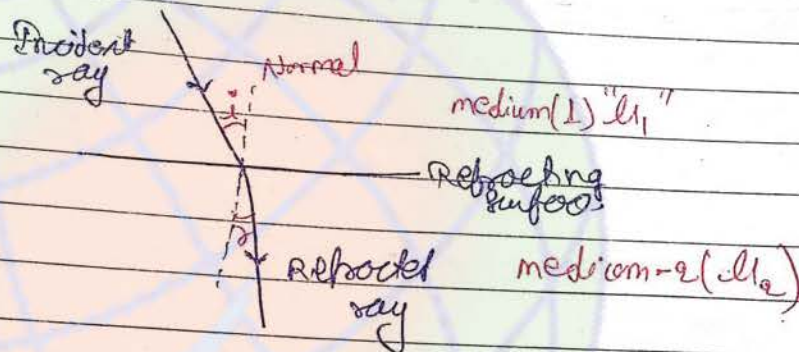 Incident
ray
Normal
i
medium(1) "μ₁"
Refracting
surface
r
Refracted
ray
medium-2(μ₂)